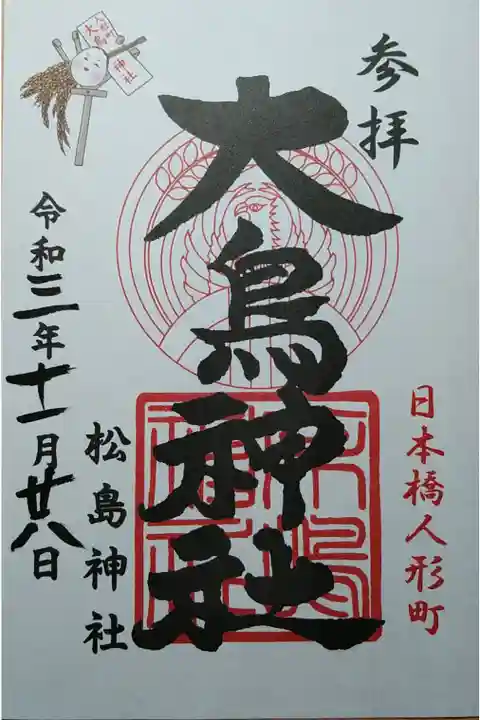 参拝
日本橋人形町
大鳥神社
松島神社
令和三年十一月廿八日